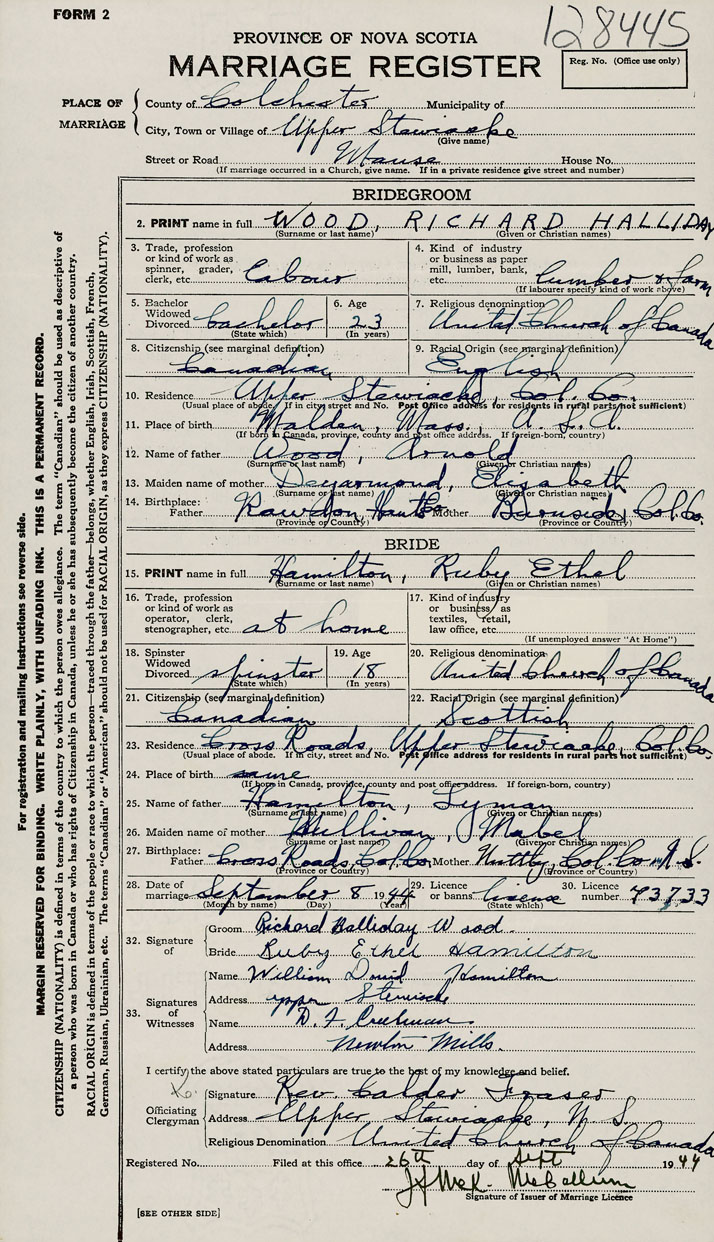 FORM 2
128445
PROVINCE OF NOVA SCOTIA
MARRIAGE REGISTER
Reg. No. (Office use only)
PLACE OF MARRIAGE
County of Colchester Municipality of
City, Town or Village of Upper Stewiacke
(Give name)
Street or Road Manse House No.
(If marriage occurred in a Church, give name. If in a private residence give street and number)
BRIDEGROOM
2. PRINT name in full WOOD, RICHARD HALLIDAY
(Surname or last name) (Given or Christian names)
3. Trade, profession or kind of work as spinner, grader, clerk, etc. Labour
4. Kind of industry or business as paper mill, lumber, bank, etc. lumber & farm
(If labourer specify kind of work above)
5. Bachelor Widowed Divorced bachelor
(State which)
6. Age 23
(In years)
7. Religious denomination United Church of Canada
8. Citizenship (see marginal definition) Canadian
9. Racial Origin (see marginal definition) English
10. Residence Upper Stewiacke, Col. Co.
(Usual place of abode. If in city, street and No. Post Office address for residents in rural parts not sufficient)
11. Place of birth Malden, Mass., U.S.A.
(If born in Canada, province, county and post office address. If foreign-born, country)
12. Name of father Wood, Arnold
(Surname or last name) (Given or Christian names)
13. Maiden name of mother Deyarmond, Elisabeth
(Surname or last name) (Given or Christian names)
14. Birthplace: Father Rawdon, Hants Co. Mother Burnside, Col. Co.
(Province or Country) (Province or Country)
BRIDE
15. PRINT name in full Hamilton, Ruby Ethel
(Surname or last name) (Given or Christian names)
16. Trade, profession or kind of work as operator, clerk, stenographer, etc. at home
17. Kind of industry or business as textiles, retail, law office, etc.
(If unemployed answer "At Home")
18. Spinster Widowed Divorced spinster
(State which)
19. Age 18
(In years)
20. Religious denomination United Church of Canada
21. Citizenship (see marginal definition) Canadian
22. Racial Origin (see marginal definition) Scottish
23. Residence Cross Roads, Upper Stewiacke, Col. Co.
(Usual place of abode. If in city, street and No. Post Office address for residents in rural parts not sufficient)
24. Place of birth same
(If born in Canada, province, county and post office address. If foreign-born, country)
25. Name of father Hamilton, Lyman
(Surname or last name) (Given or Christian names)
26. Maiden name of mother Sullivan, Mabel
(Surname or last name) (Given or Christian names)
27. Birthplace: Father Cross Roads, Col. Co. Mother Nuttby, Col. Co. N.S.
(Province or Country) (Province or Country)
28. Date of marriage September 8 1944
(Month by name) (Day) (Year)
29. Licence or banns license
(State which)
30. Licence number 73733
32. Signature of
Groom Richard Halliday Wood.
Bride Ruby Ethel Hamilton
33. Signatures of Witnesses
Name William David Hamilton
Address upper Stewiacke
Name D. F. Creelman
Address Newton Mills.
I certify the above stated particulars are true to the best of my knowledge and belief.
Officiating Clergyman
Signature Rev. Calder Fraser
Address Upper Stewiacke, N.S.
Religious Denomination United Church of Canada
Registered No. Filed at this office 26th day of Sept 1944
McCallum
Signature of Issuer of Marriage Licence
[SEE OTHER SIDE]
For registration and mailing instructions see reverse side.
MARGIN RESERVED FOR BINDING. WRITE PLAINLY, WITH UNFADING INK. THIS IS A PERMANENT RECORD.
CITIZENSHIP (NATIONALITY) is defined in terms of the country to which the person owes allegiance. The term "Canadian" should be used as descriptive of
a person who was born in Canada or who has rights of Citizenship in Canada, unless he or she has subsequently become the citizen of another country.
RACIAL ORIGIN is defined in terms of the people or race to which the person—traced through the father—belongs, whether English, Irish, Scottish, French,
German, Russian, Ukrainian, etc. The terms "Canadian" or "American" should not be used for RACIAL ORIGIN, as they express CITIZENSHIP (NATIONALITY).